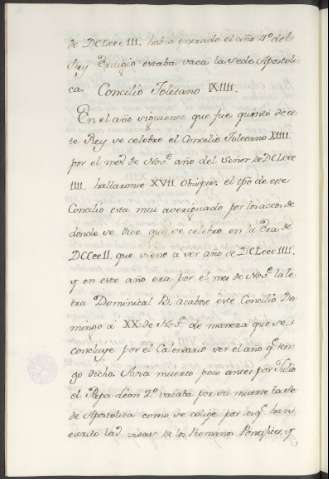 de DCLxxxIII. havia entrado el año 4º. del
Rey Ervigio estaba vaca la Sede Apostoli
ca. Concilio Toletano XIIII.
En el año siguiente que fue quinto de es
te Rey se celebro el Concilio Toletano XIIII.
por el mes de Nov.e año del Señor de DCLxxx
IIII. hallaronse XVII. Obispos, el tpo de este
Concilio esta mui averiguado por los actos, de
donde se dice que se celebro en la Era de
DCCxxII. que viene a ser año de DCLxxxIIII.
y en este año era por el mes de Nov.e la le
tra Dominical B. acabose este Concilio Do
mingo a XX. de Nov.e de manera que se
concluye por el Calendario ser el año q.e ten
go dicho. Havia muerto poco antes por Julio
el Papa Leon 2º. vacaba por su muerte la Se
de Apostolica como se colige por lo q.e
escrito las vidas de los Romanos Pontifices, y